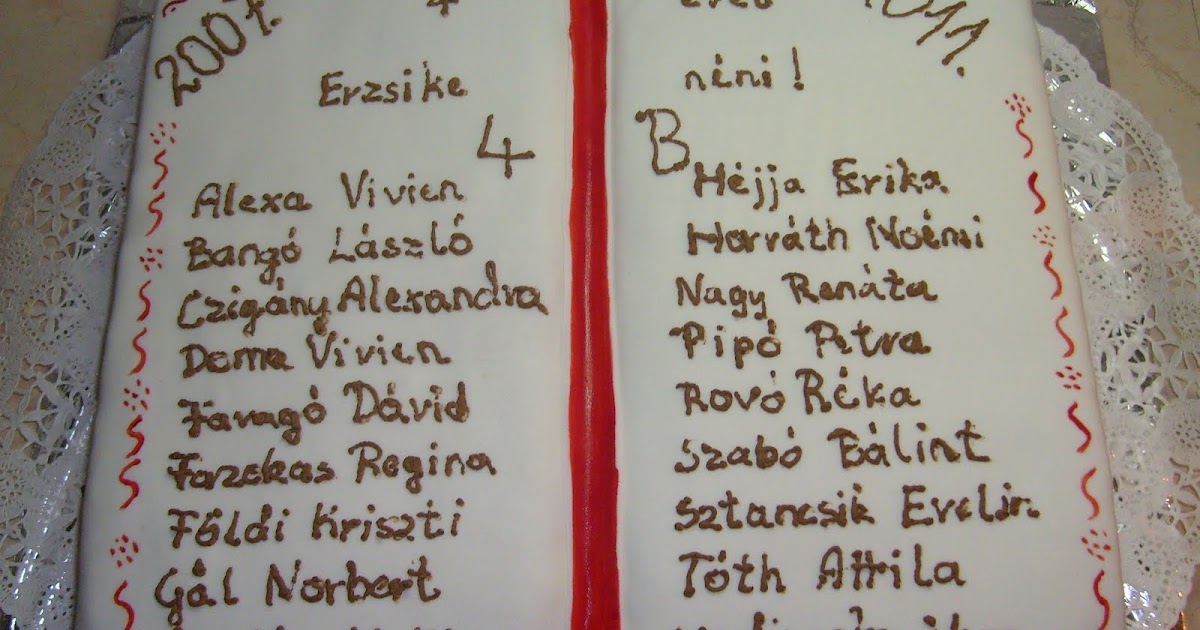 2007.
Erzsike
4
Alexa Vivien
Bangó László
Czigány Alexandra
Doma Vivien
Faragó Dávid
Fazekas Regina
Földi Kriszti
Gál Norbert
2011.
néni!
B
Héjja Erika
Horváth Noémi
Nagy Renáta
Pipó Petra
Rovó Réka
Szabó Bálint
Sztancsik Evelin
Tóth Attila